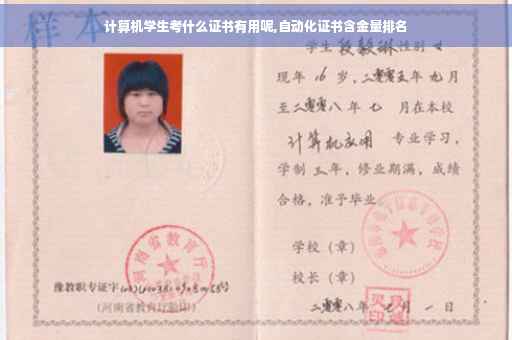 计算机学生考什么证书有用呢,自动化证书含金量排名
样本
学生 段毅琳 性别 女
现年 16 岁,二零零五年 九 月
至二零零八年 七 月在本校
计算机应用 专业学习,
学制 三 年,修业期满,成绩
合格,准予毕业
学校(章)
校长(章)
二零零八年 月 一 日
河南省教育厅
豫教职专证字
(河南省教育厅验印)